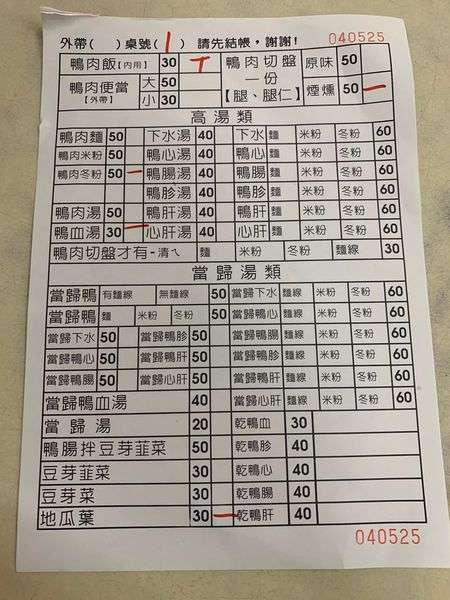 外帶( ) 桌號(1) 請先結帳，謝謝! 040525
鴨肉飯【內用】 30 丅 鴨肉切盤一份【腿、腿仁】 原味 50
鴨肉便當【外帶】 大 50 煙燻 50 一
小 30
高湯類
鴨肉麵 50 下水湯 40 下水 麵 米粉 冬粉 60
鴨肉米粉 50 鴨心湯 40 鴨心 麵 米粉 冬粉 60
鴨肉冬粉 50 一 鴨腸湯 40 鴨腸 麵 米粉 冬粉 60
鴨胗湯 40 鴨胗 麵 米粉 冬粉 60
鴨肉湯 50 鴨肝湯 40 鴨肝 麵 米粉 冬粉 60
鴨血湯 30 一 心肝湯 40 心肝 麵 米粉 冬粉 60
鴨肉切盤才有-清ㄟ 麵 米粉 冬粉 麵線 30
當歸湯類
當歸鴨 有麵線 無麵線 50 當歸下水 麵線 米粉 冬粉 60
當歸鴨 麵 米粉 冬粉 50 當歸鴨心 麵線 米粉 冬粉 60
當歸下水 50 當歸鴨胗 50 當歸鴨腸 麵線 米粉 冬粉 60
當歸鴨心 50 當歸鴨肝 50 當歸鴨胗 麵線 米粉 冬粉 60
當歸鴨腸 50 當歸心肝 50 當歸鴨肝 麵線 米粉 冬粉 60
當歸鴨血湯 40 當歸心肝 麵線 米粉 冬粉 60
當歸湯 20 乾鴨血 30
鴨腸拌豆芽韮菜 50 乾鴨胗 40
豆芽韮菜 30 乾鴨心 40
豆芽菜 30 乾鴨腸 40
地瓜葉 30 一 乾鴨肝 40
040525